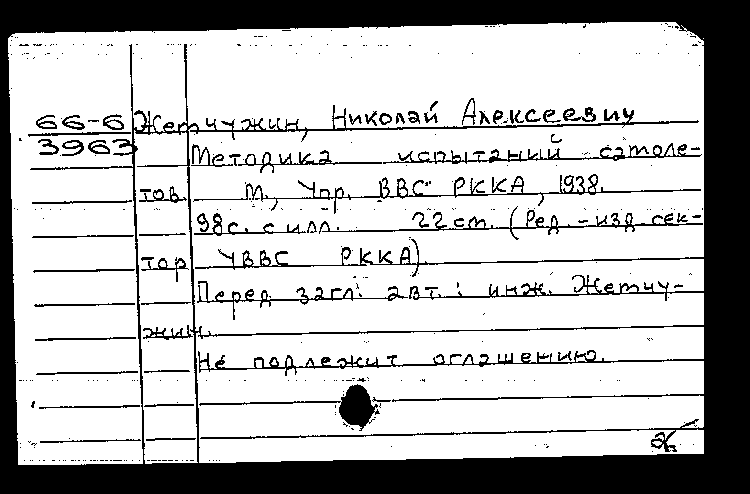 66-6 Жемчужин, Николай Алексеевич
3963 Методика испытаний самоле-
тов. М., Упр. ВВС РККА, 1938.
98с. с илл. 22 см. (Ред.-изд. сек-
тор УВВС РККА).
Перед загл. авт.: инж. Жемчу-
жин.
Не подлежит оглашению.